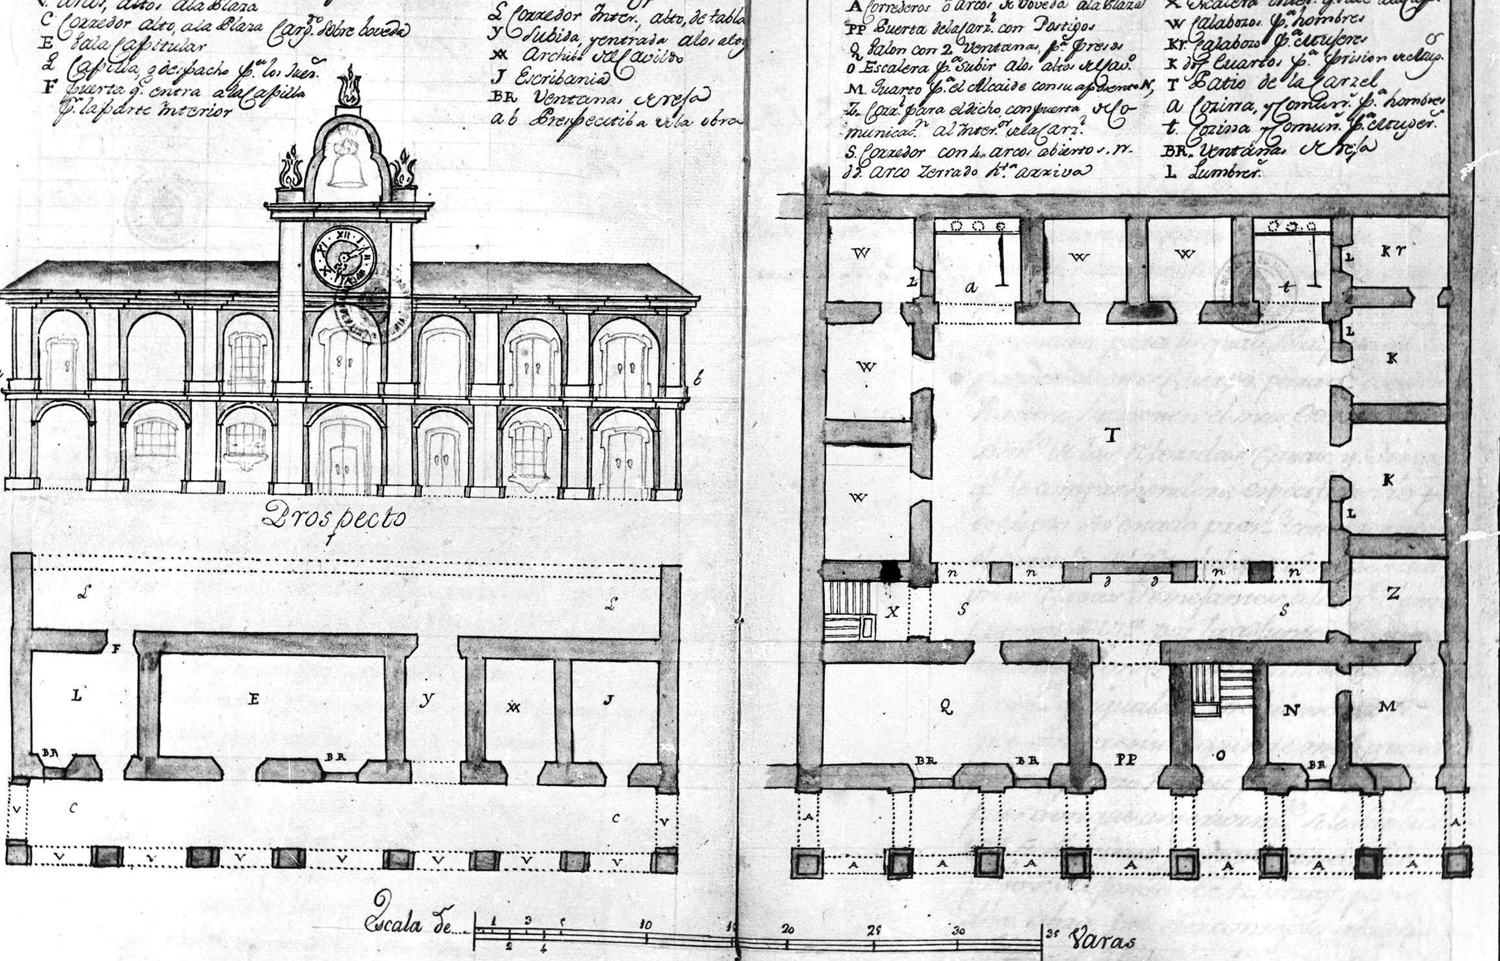 Arcos, altos ala Plaza
C Corredor alto, ala Plaza Cargdo. sobre boveda
E Sala Capitular
L Capilla, despacho pa. los
F puerta qe. entra ala Capilla
pr. la parte Interior
L Corredor Inter. alto, de tabla
Y Subida y entrada alos altos
Archibo del Cavildo
J Escribania
BR Ventanas de reja
a b Prespectiba de la obra
A Correderos o Arcos de boveda ala Plaza
PP Puerta dela Carl. con Postigos
Q Salon con 2 Ventanas, pa. Presos
O Escalera pa. subir alos altos
M Quarto pa. el Alcaide con su aposento N,
Z Corr. para el dicho con puerta de Co-
municac. al Inter. de la Carl.
S. Corredor con 4 arcos abiertos. n.
d. arco Zerrado
X Escalera
W Calabozos pa. hombres
Kr. Calabozo pa. Mujeres
K dos Cuartos pa. pricion
T Patio de la Carzel
a Cozina, y Comun. pa. hombres
t. Cozina y Comun. pa. Mujer.
BR. Ventanas de reja
L Lumbrer.
b
Prospecto
L L
F
L E Y J
BR BR
C C
V V V V V V V V
W a W W t Kr
L L
W T K
L
W K
L
n n n n
d d
X S S Z
Q N M
PP O
BR BR BR
A A A A A A A A A
Escala de 1 3 5 10 15 20 25 30 35 Varas
2 4